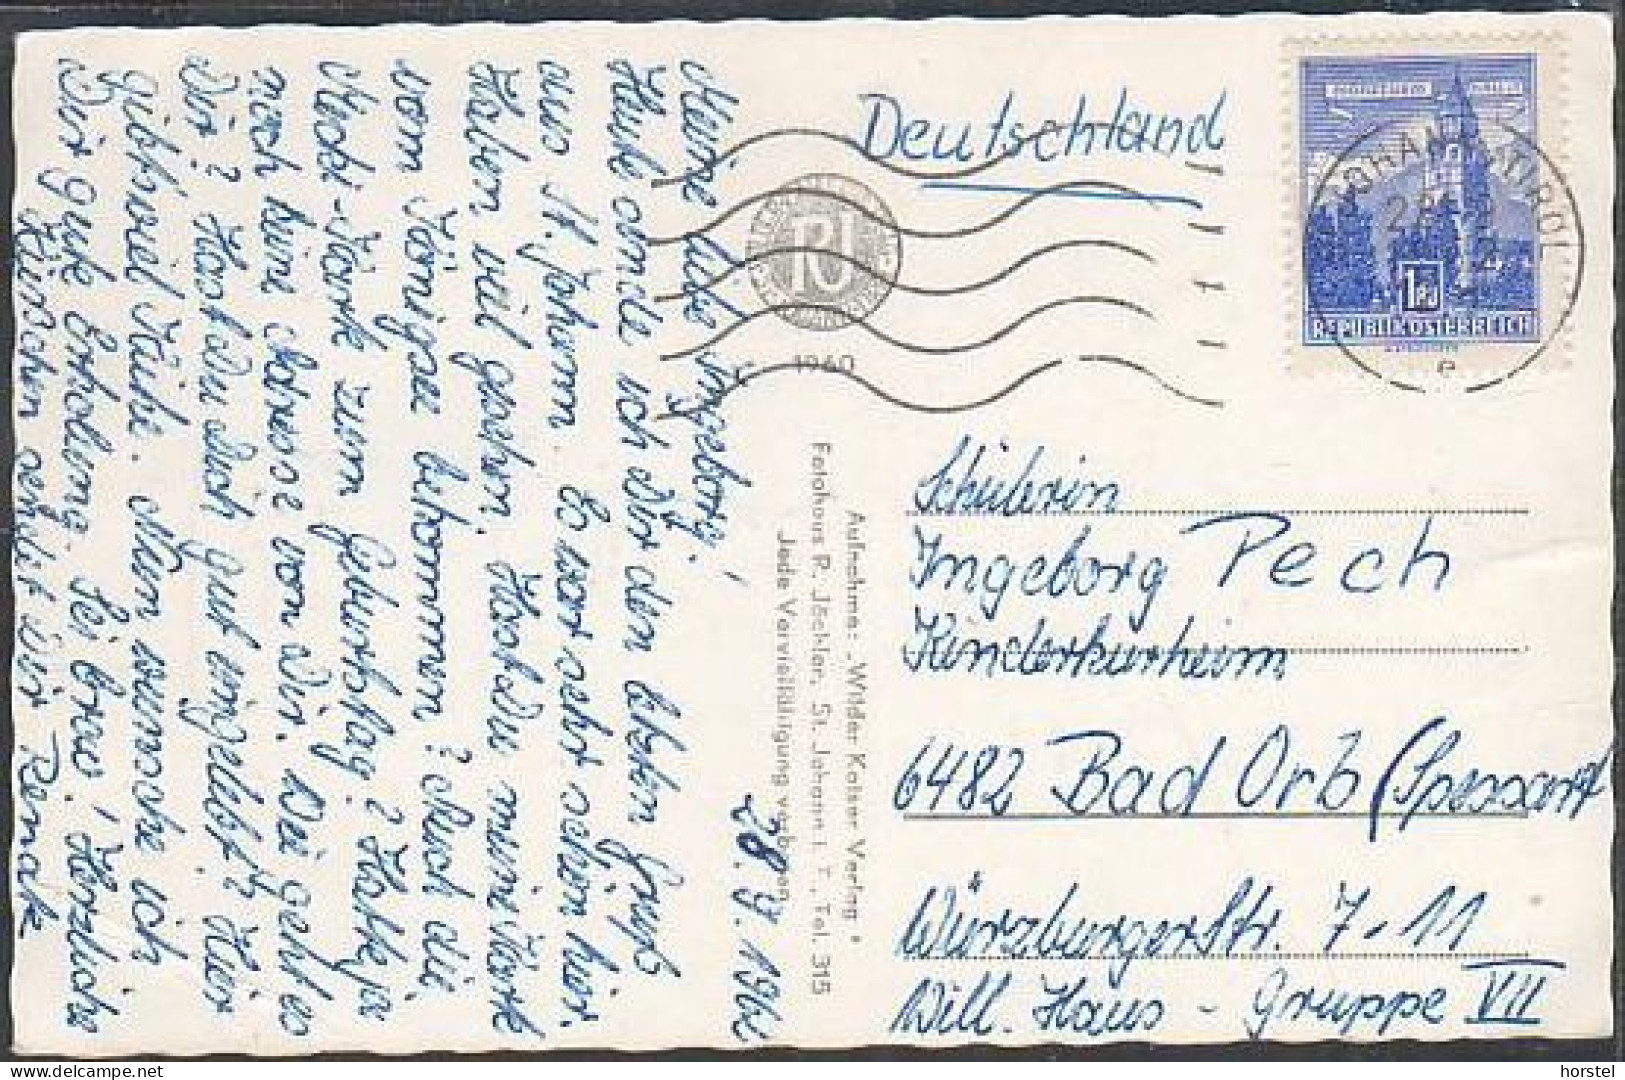 Deutschland
REPUBLIK ÖSTERREICH
1960
e
28.9.1962
Meine liebe Ingeborg!
Heute sende ich Dir den besten Gruß
aus St. Johann. Es ist sehr schön hier.
Haben viel gesehen. Hast Du meine Karte
vom Königsee bekommen? Auch die
Mecki-Karte zum Geburtstag? Hatte ja
noch keine Adresse von Dir. Wie geht es
Dir? Hast Du Dich gut eingelebt? Hier
gibt's viel Kühe. Nun wünsche ich
Dir gute Erholung. Sei brav! Herzliche
Küsschen sendet Dir Renate
Aufnahme: „Wilder Kaiser Verlag"
Fotohaus R. Jöchler, St. Johann i. T., Tel. 315
Jede Vervielfältigung verboten
Schülerin
Ingeborg Pech
Kinderkurheim
6482 Bad Orb (Spessart
Würzburger Str. 7-11
Will. Haus - Gruppe VII
horstel